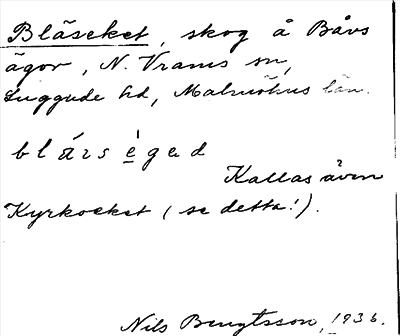 Blåseket, skog å Båvs
ägor, N. Vrams sn,
Luggude hd, Malmöhus län.
blárs égad
Kallas även
Kyrkoeket (se detta!).
Nils Bengtsson, 1936.